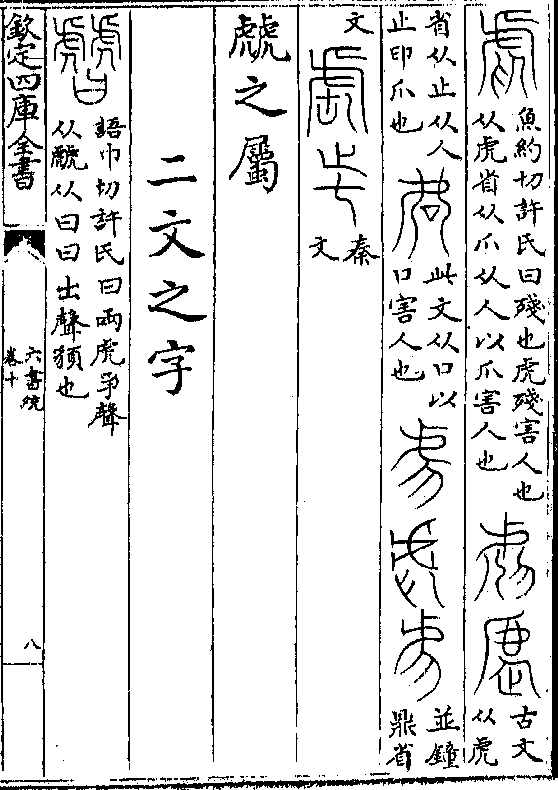 魚約切許氏曰殘也虎殘害人也
从虎省从爪从人以爪害人也
古文
从虎
省从止从人
止印爪也
此文从口以
口害人也
並鐘
鼎省
文
秦
文
虤之屬
二文之字
語巾切許氏曰兩虎爭聲
从虤从曰曰出聲
也
欽定四庫全書
六書統
卷十
八